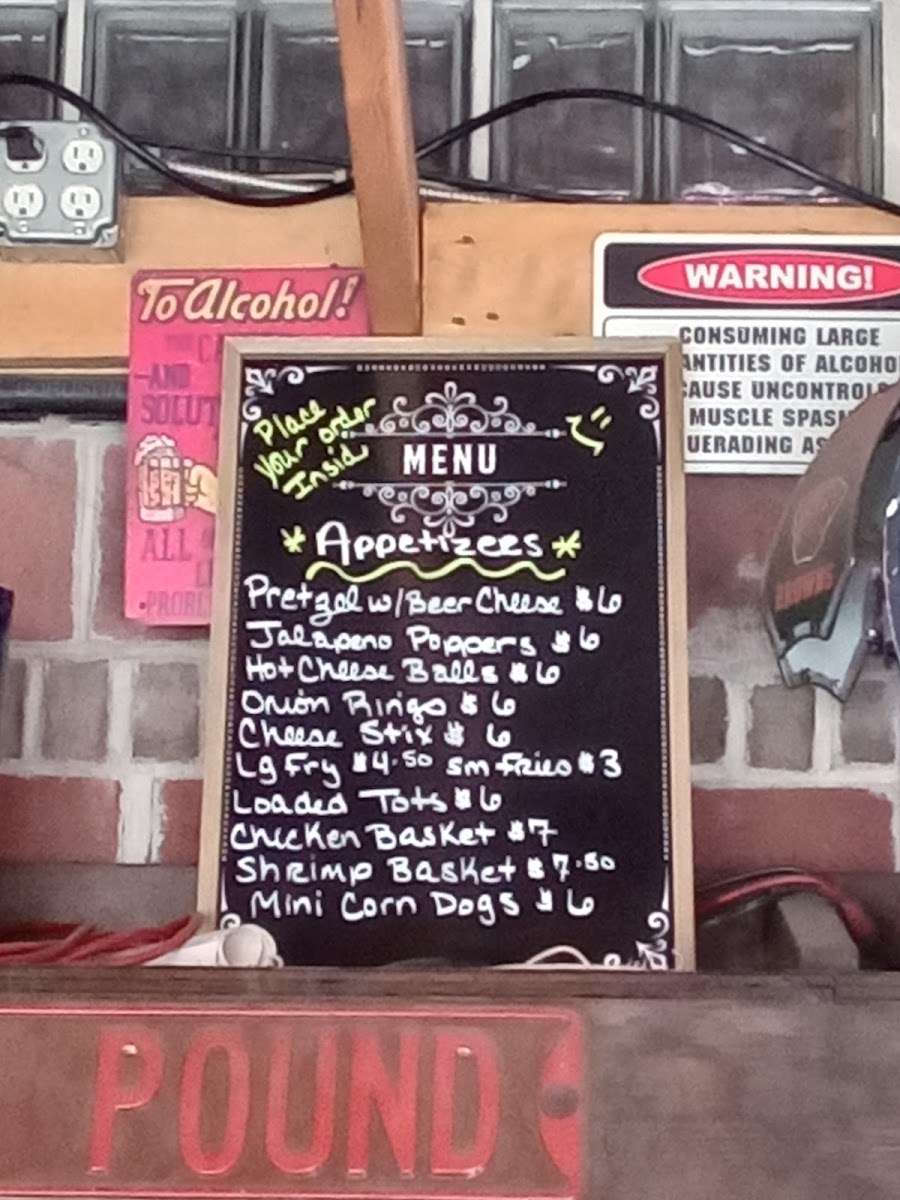 To Alcohol!
THE CA
-AND
SOLUT
ALL
•PROBL
WARNING!
CONSUMING LARGE
ANTITIES OF ALCOHO
AUSE UNCONTROL
MUSCLE SPAS
UERADING AS
Place
your order
Insid
MENU
*Appetizers*
Pretzel w/Beer Cheese $6
Jalapeno Poppers $6
Hot Cheese Balls $6
Onion Rings $6
Cheese Stix $6
Lg Fry $4.50 sm Fries $3
Loaded Tots $6
Chicken Basket $7
Shrimp Basket $7.50
Mini Corn Dogs $6
POUND